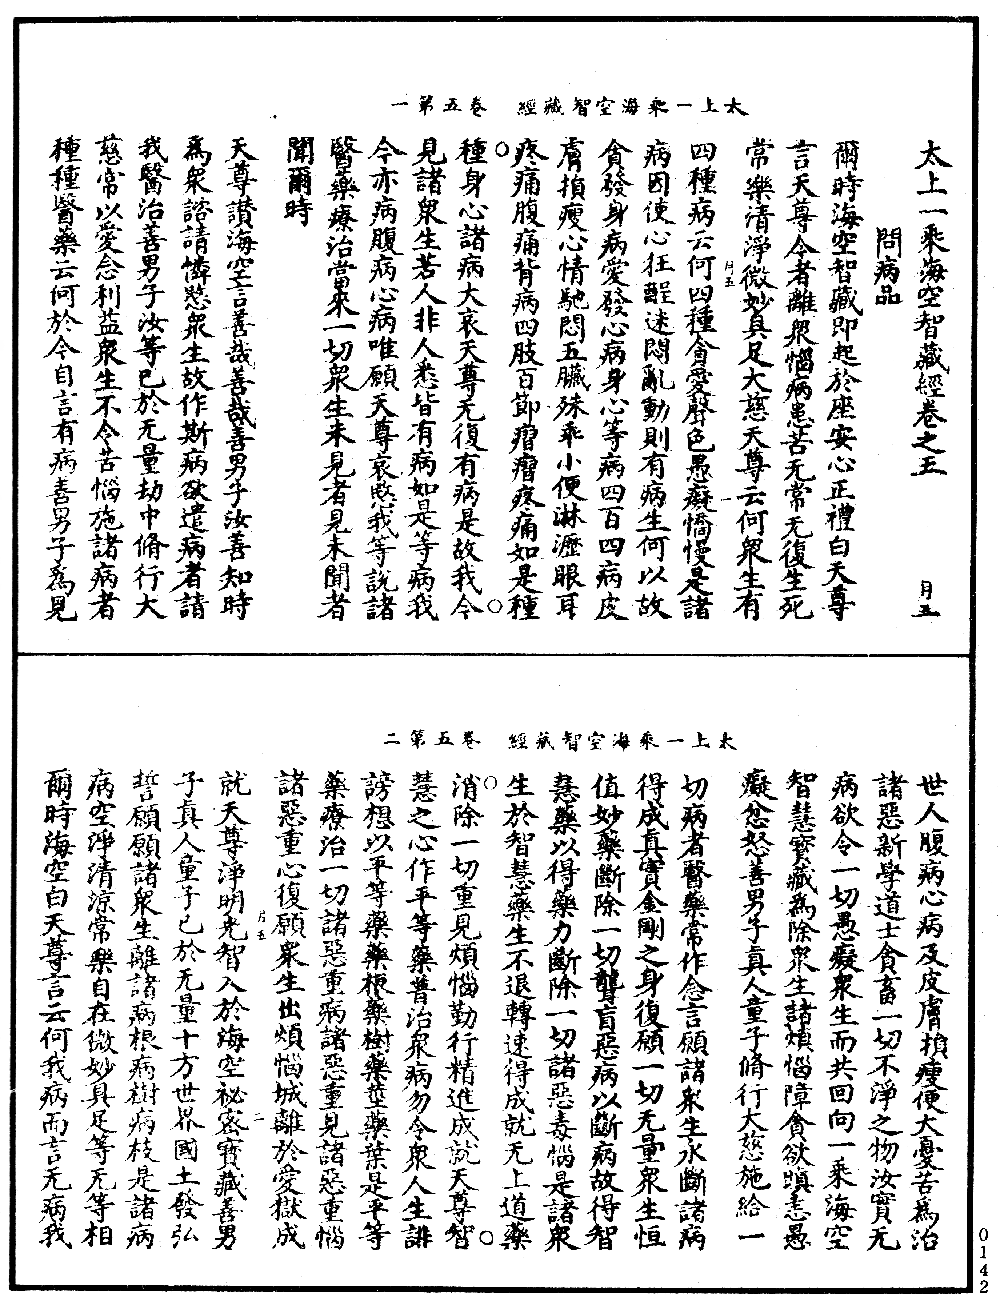 太上一乘海空智藏經 卷五第一
太上一乘海空智藏經卷之五 月五
問病品
爾時海空智藏即起於座安心正禮白天尊
言天尊今者離衆惱病患苦无常无復生死
常樂清淨微妙具足大慈天尊云何衆生有
月五 一
四種病云何四種貪愛聲色愚癡憍慢是諸
病因使心狂醒迷悶亂動則有病生何以故
貪發身病愛發心病身心等病四百四病皮
膚損瘦心情馳悶五臟殊乖小便淋瀝眼耳
疼痛腹痛背病四肢百節瘤瘤疼痛如是種
種身心諸病大哀天尊无復有病是故我今
見諸衆生若人非人悉皆有病如是等病我
今亦病腹病心病唯願天尊哀愍我等說諸
醫藥療治當來一切衆生未見者見未聞者
聞爾時
天尊讃海空言善哉善哉善男子汝善知時
爲衆諮請憐愍衆生故作斯病欲遣病者請
我醫治善男子汝等已於无量劫中脩行大
慈常以愛念利益衆生不令苦惱施諸病者
種種醫藥云何於今自言有病善男子爲見
太上一乘海空智藏經 卷五第二
世人腹病心病及皮膚損瘦便大憂苦爲治
諸惡新學道士貪畜一切不淨之物汝實无
病欲令一切愚癡衆生而共回向一乘海空
智慧寶藏爲除衆生諸煩惱障貪欲嗔恚愚
癡忿怒善男子真人童子脩行大慈施給一
切病者醫藥常作念言願諸衆生永斷諸病
得成真實金剛之身復願一切无量衆生恒
值妙藥斷除一切聾盲惡病以斷病故得智
慧藥以得藥力斷除一切諸惡毒惱是諸衆
生於智慧藥生不退轉速得成就无上道藥
消除一切重見煩惱勤行精進成就天尊智
慧之心作平等藥普治衆病勿令衆人生誹
謗想以平等藥藥梗藥樹藥莖藥葉是平等
藥療治一切諸惡重病諸惡重見諸惡重惱
諸惡重心復願衆生出煩惱城離於愛獄成
月五 二
就天尊淨明光智入於海空祕密寶藏善男
子真人童子已於无量十方世界國土發弘
誓願願諸衆生離諸病根病樹病枝是諸病
病空淨清涼常樂自在微妙具足等无等相
爾時海空白天尊言云何我病而言无病我
0142